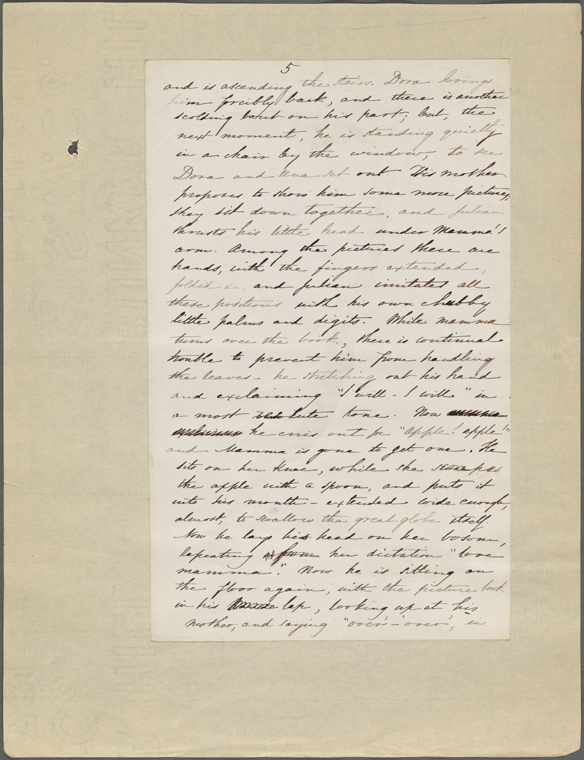 5
and is ascending the stairs. Dora brings
him forcibly back, and there is another
scolding bout on his part; but, the
next moment, he is standing quietly
in a chair by the window, to see
Dora and Una set out. His mother
proposes to show him some more pictures,
they sit down together, and Julian
thrusts his little head under Mamma's
arm. Among the pictures there are
hands, with the fingers extended,
folded &c, and Julian imitates all
these positions with his own chubby
little palms and digits. While mamma
turns over the book, there is continual
trouble to prevent him from handling
the leaves - he stretching out his hand
and exclaiming "I will - I will" in
a most tone. Now
he cries out for "apple! apple!"
and Mamma is gone to get one. He
sits on her knee, while she
the apple with a spoon, and puts it
into his mouth - extended wide enough,
almost, to swallow the great globe itself.
Now he lays his head on her bosom,
repeating from her dictation "love
mamma". Now he is sitting on
the floor again, with the picture book
in his lap, looking up at his
mother, and saying "over - over", in